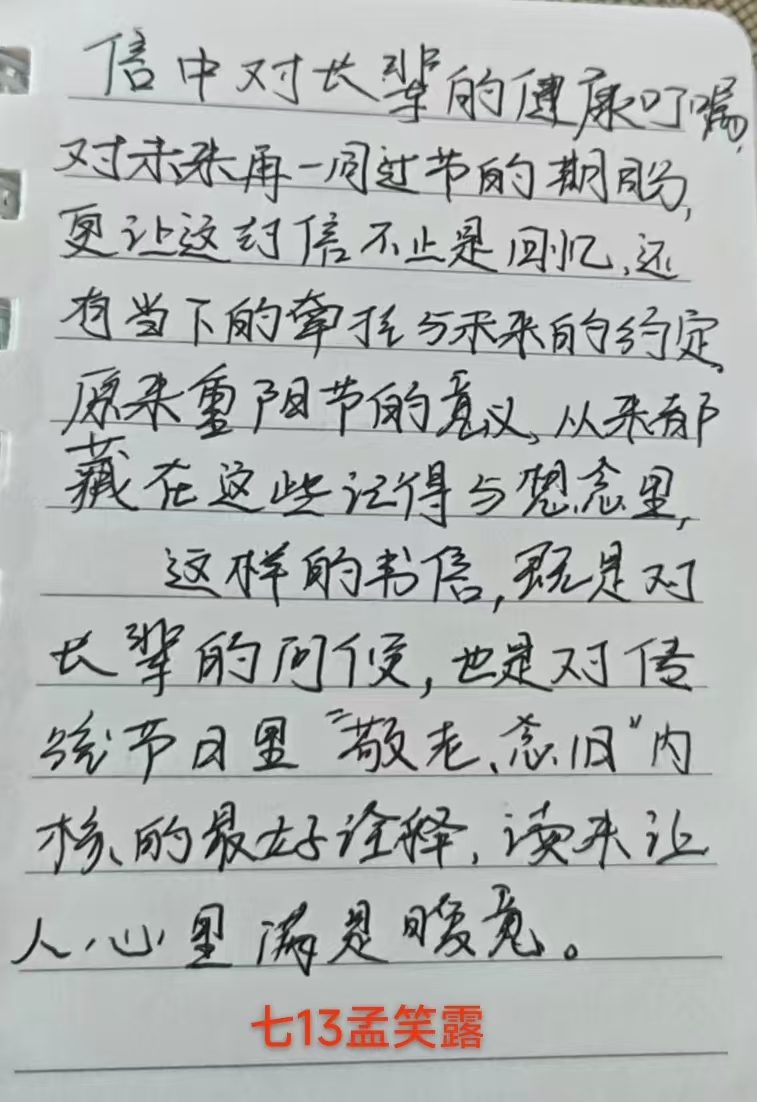 信中对长辈的健康叮嘱,
对未来再一同过节的期盼,
更让这封信不止是回忆,还
有当下的牵挂与未来的约定,
原来重阳节的意义,从来都
藏在这些记得与想念里,
这样的书信,既是对
长辈的问候,也是对传
统节日里“敬老、念旧”内
核的最好诠释,读来让
人心里满是暖意。
七13孟笑露